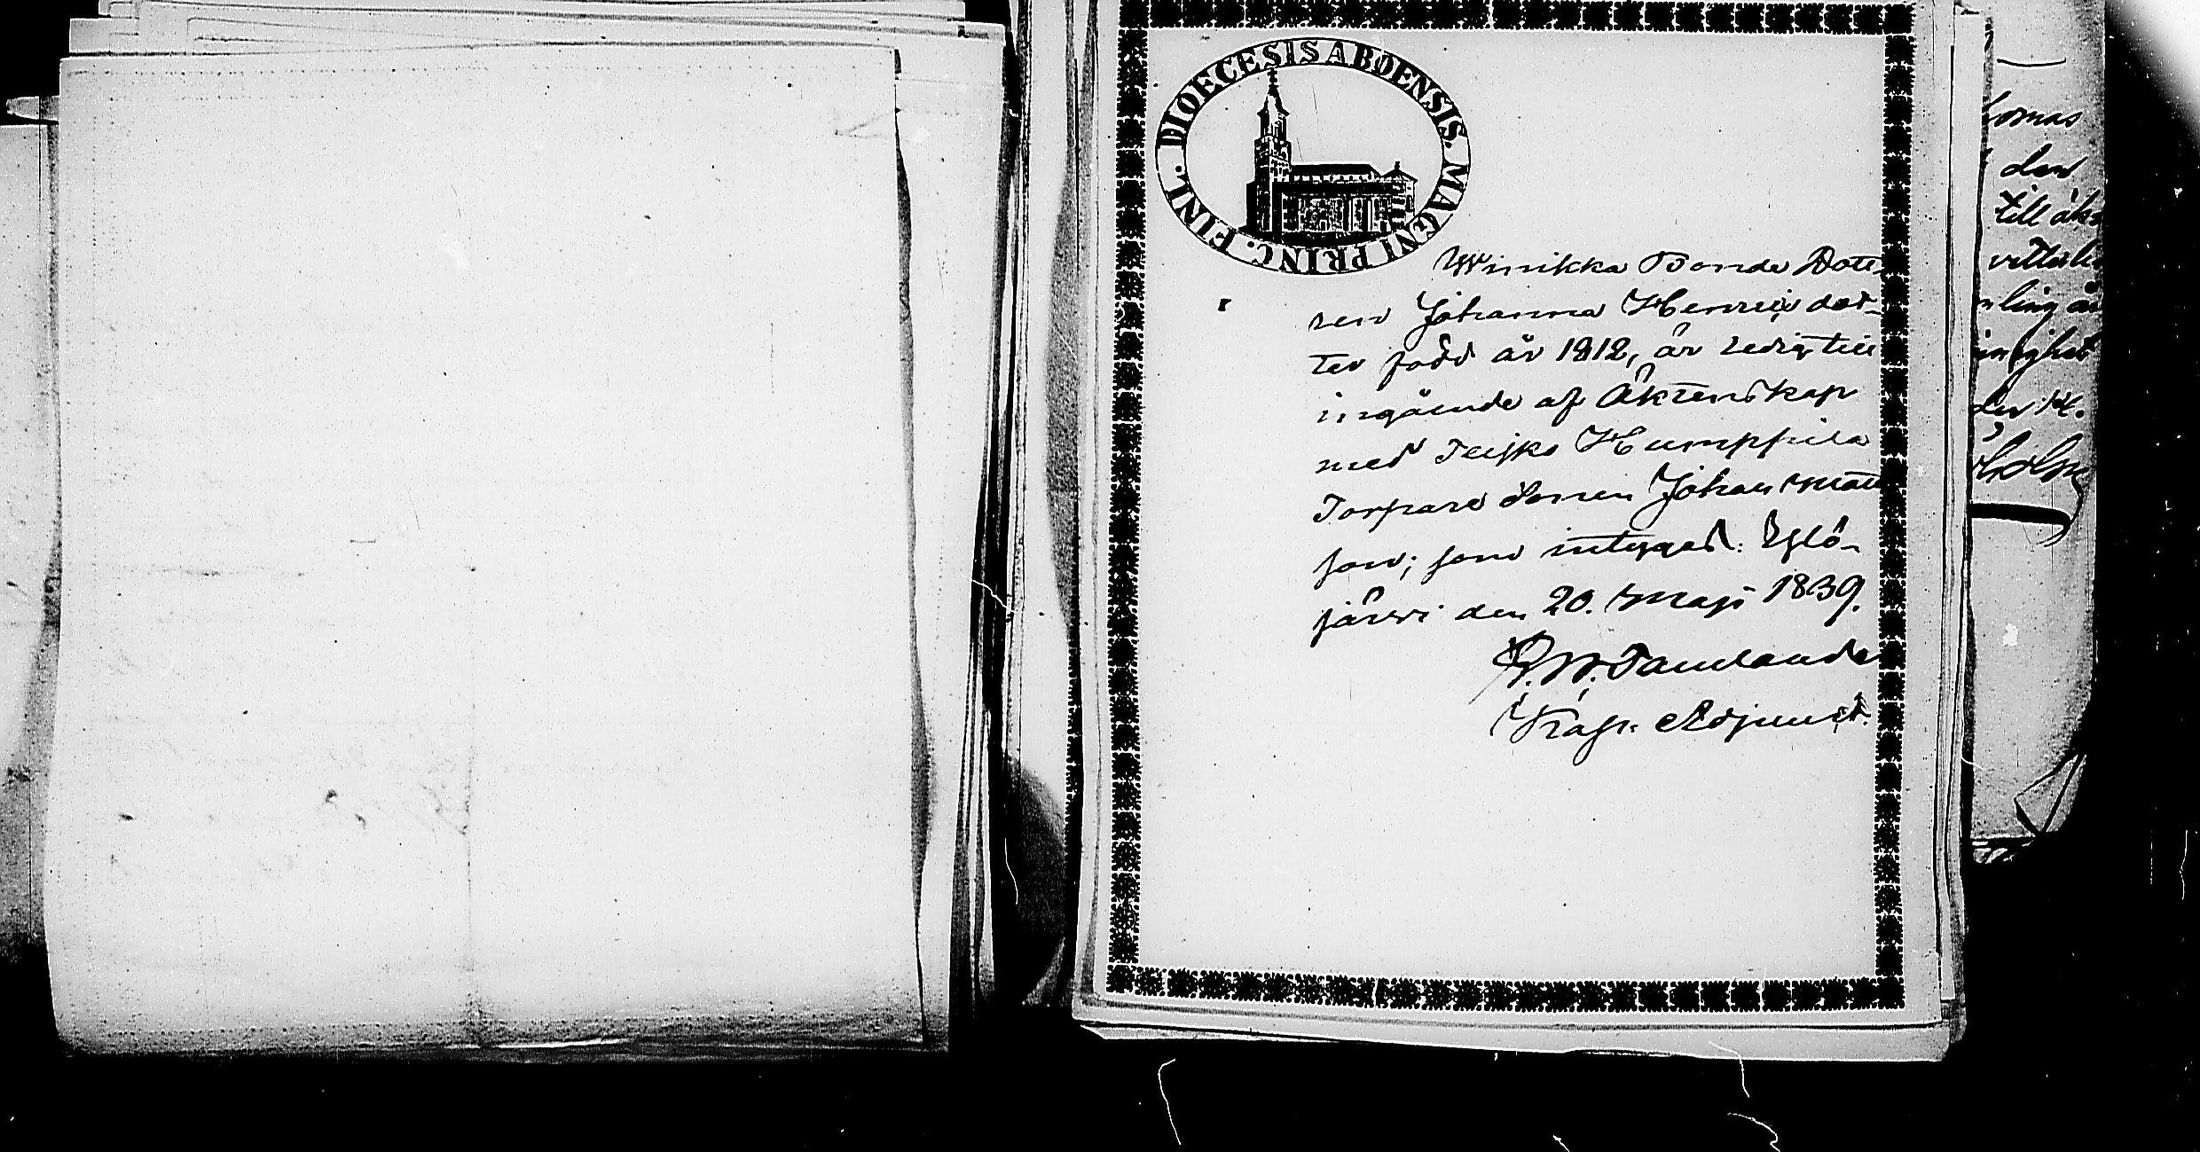 DIOECESIS ABOENSIS. MAGNI PRINC. FINL.
Winikka Bonde Dote-
ren Johanna Henrics dot-
ter född år 1812, är ledig till
ingående af Äktenskap
med Teisko Humppila
Torpare Sonen Johan Matts
son; som intygad: Ylö-
järvi den 20. Maji 1839.
W. Tamlander
Kapl. Adjunct.
den
till
den 14.